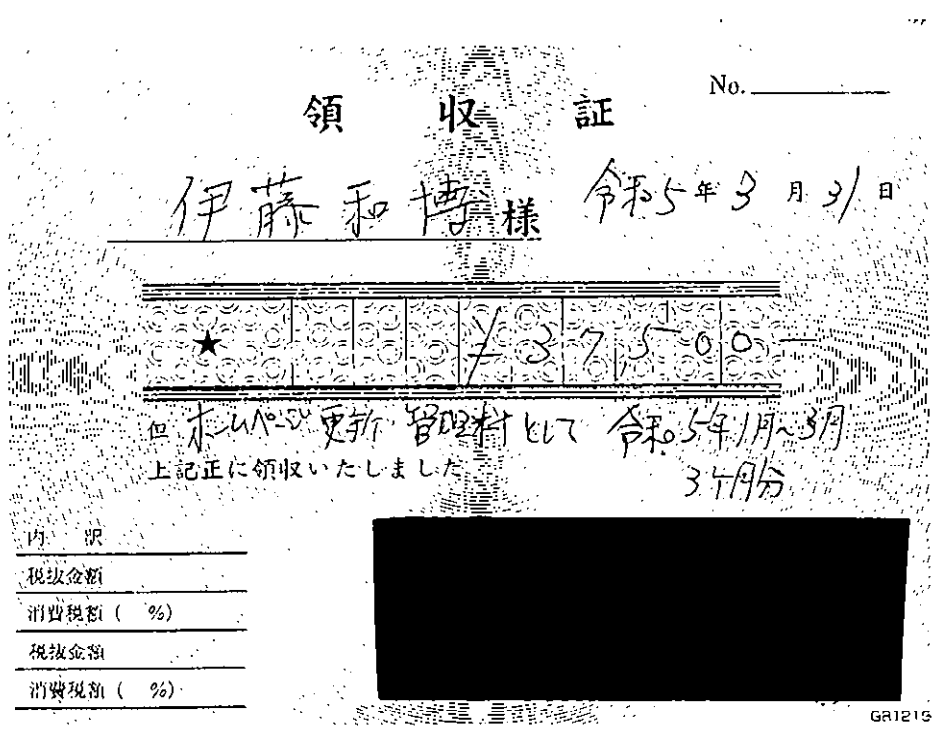 No.
領収証
伊藤和博様 令和5年3月31日
★ ¥37,500—
但 ホームページ更新管理料として 令和5年1月~3月
上記正に領収いたしました 3ヶ月分
内 訳
税抜金額
消費税額( %)
税抜金額
消費税額( %)
GR1215